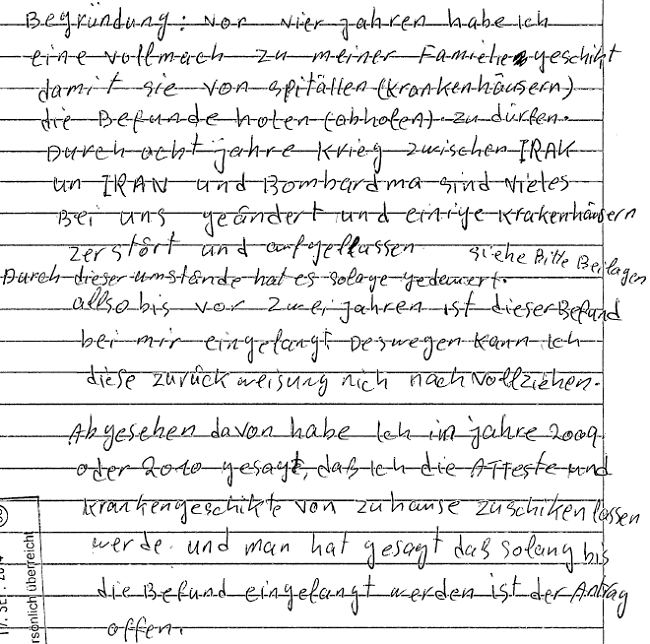 Begründung: vor vier jahren habe ich
eine vollmach zu meiner Familie geschikt
damit sie von spitällen (krankenhäusern)
die Befunde holen (abholen) zu dürfen.
Durch acht jahre krieg zwischen IRAK
un IRAN und Bombardma sind vieles
Bei uns geändert und einige krakenhäusern
zerstört und aufgellassen siehe Bitte Beilagen
Durch dieser umstände hat es solage gedeuert.
allso bis vor zwei jahren ist dieser Befund
bei mir eingelangt. Deswegen kann ich
diese zurückweisung nich nachvollziehen.
Abgesehen davon habe Ich im jahre 2009
oder 2010 gesagt, daß ich die Atteste und
krankengeschikte von zuhause zuschiken lassen
werde. und man hat gesagt daß solang bis
die Befund eingelangt werden ist der Antrag
offen.
rsönlich überreicht